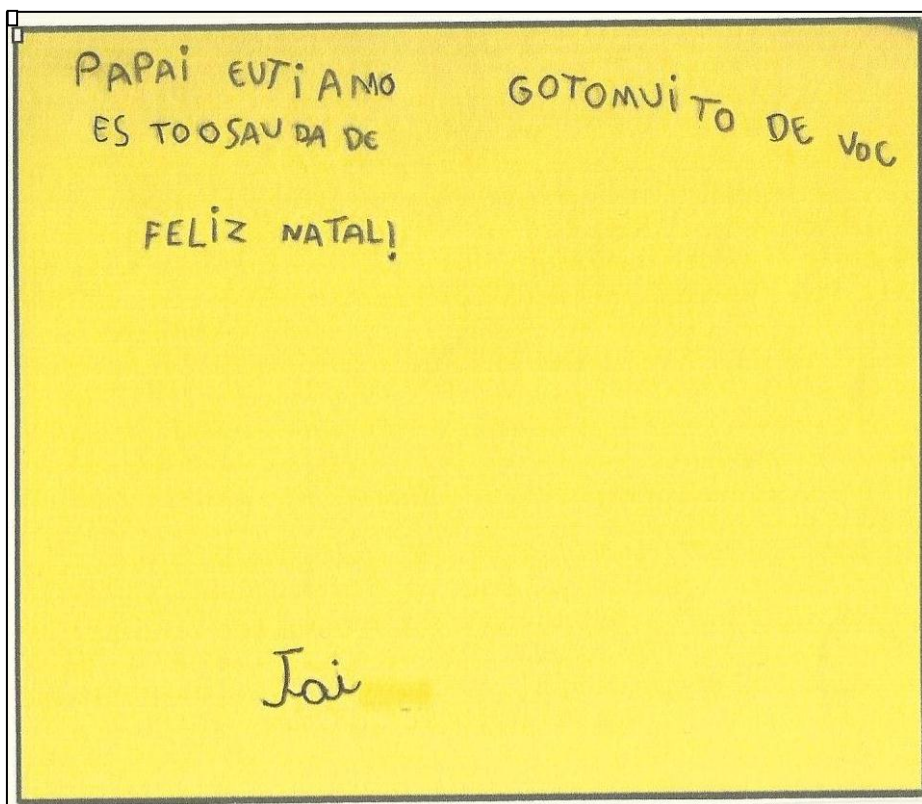 PAPAi EUTiAMO
GOTOMUiTO DE VOC
ES TOOSAUDA DE
FELiZ NATAL!
Jai